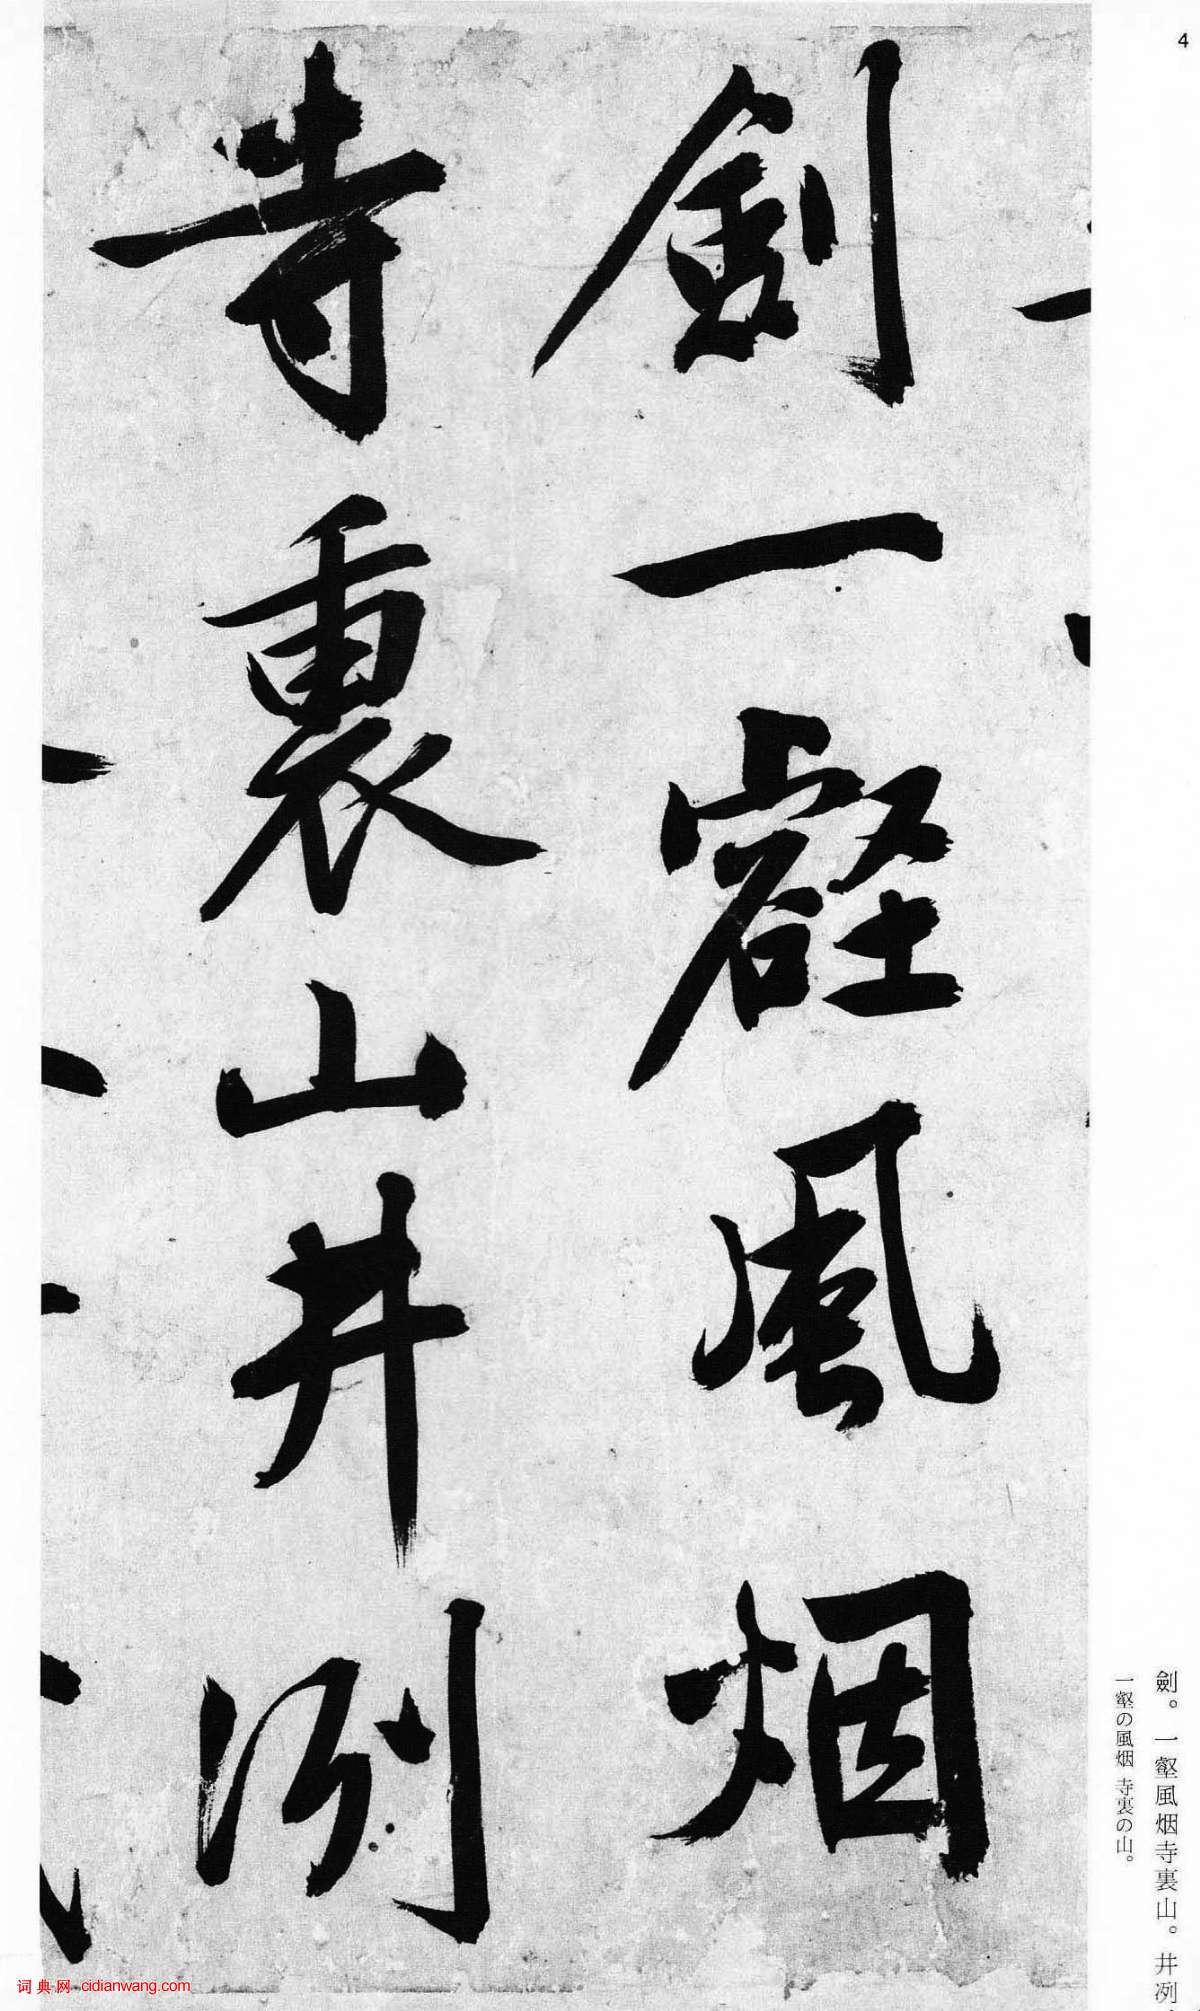 4
劍一壑風烟
寺裏山井冽
劍。一壑風烟寺裏山。井冽
一壑の風烟 寺裏の山。
词典网 cidianwang.com